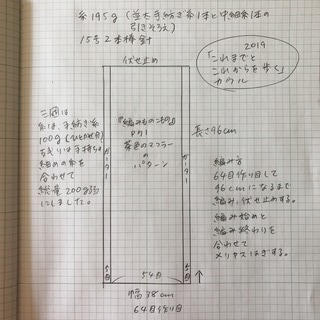 糸195g(並太手紡ぎ糸1本と中細糸1本の
引きそろえ)
15号2本棒針
2019
「これまでと
これからを歩く」
カウル
伏せ止め
三國は
糸は、手紡ぎ糸
100g
残りは手持ちの
細めの糸を
合わせて
総量200g弱
にしました。
『編みものこもの』
P41
茶色のマフラー
の
パターン
ガーター
ガーター
長さ96cm
編み方
64目作り目して
96cmになるまで
編み、伏せ止めする。
編み始めと
編み終わりを
合わせて
メリヤスはぎする。
5目
54目
5目
幅38cm
64目作り目